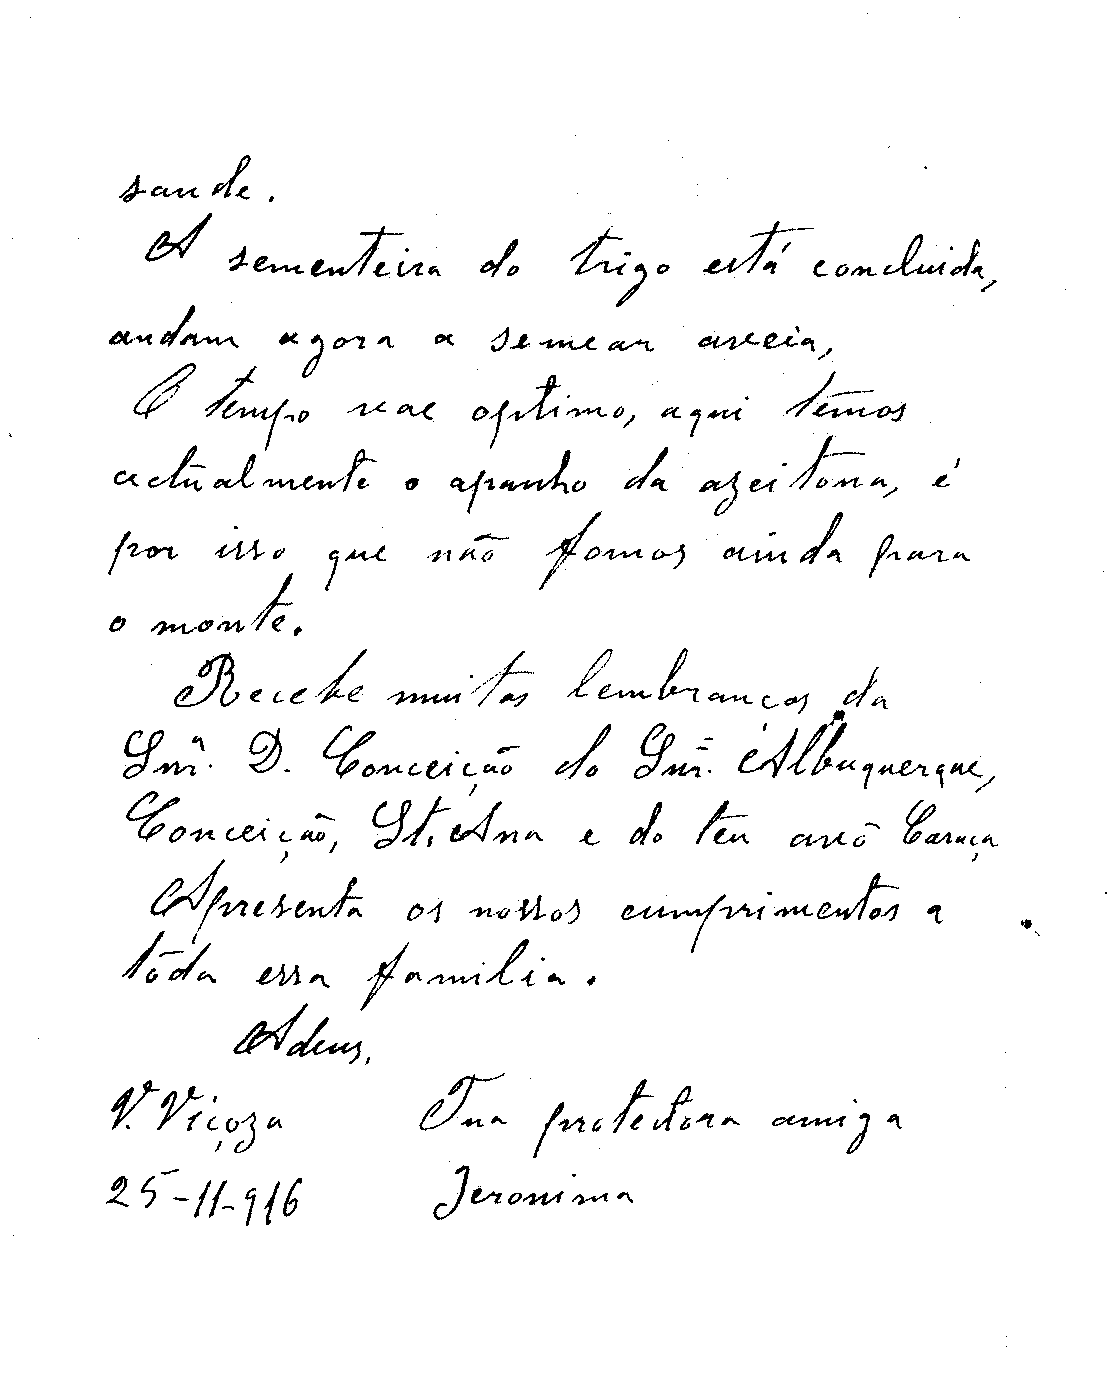 saude.
A sementeira do trigo está concluida,
andam agora a semear aveia,
O tempo vae optimo, aqui têmos
actualmente o apanho da azeitona, é
por isso que não fomos ainda para
o monte.
Recebe muitas lembranças da
Snrª. D. Conceição do Snr. Albuquerque,
Conceição, St. Ana e do teu avô Caraça
Apresenta os nossos cumprimentos a
tôda essa familia.
Adeus,
V. Viçoza Tua protectora amiga
25-11-916 Jeronima